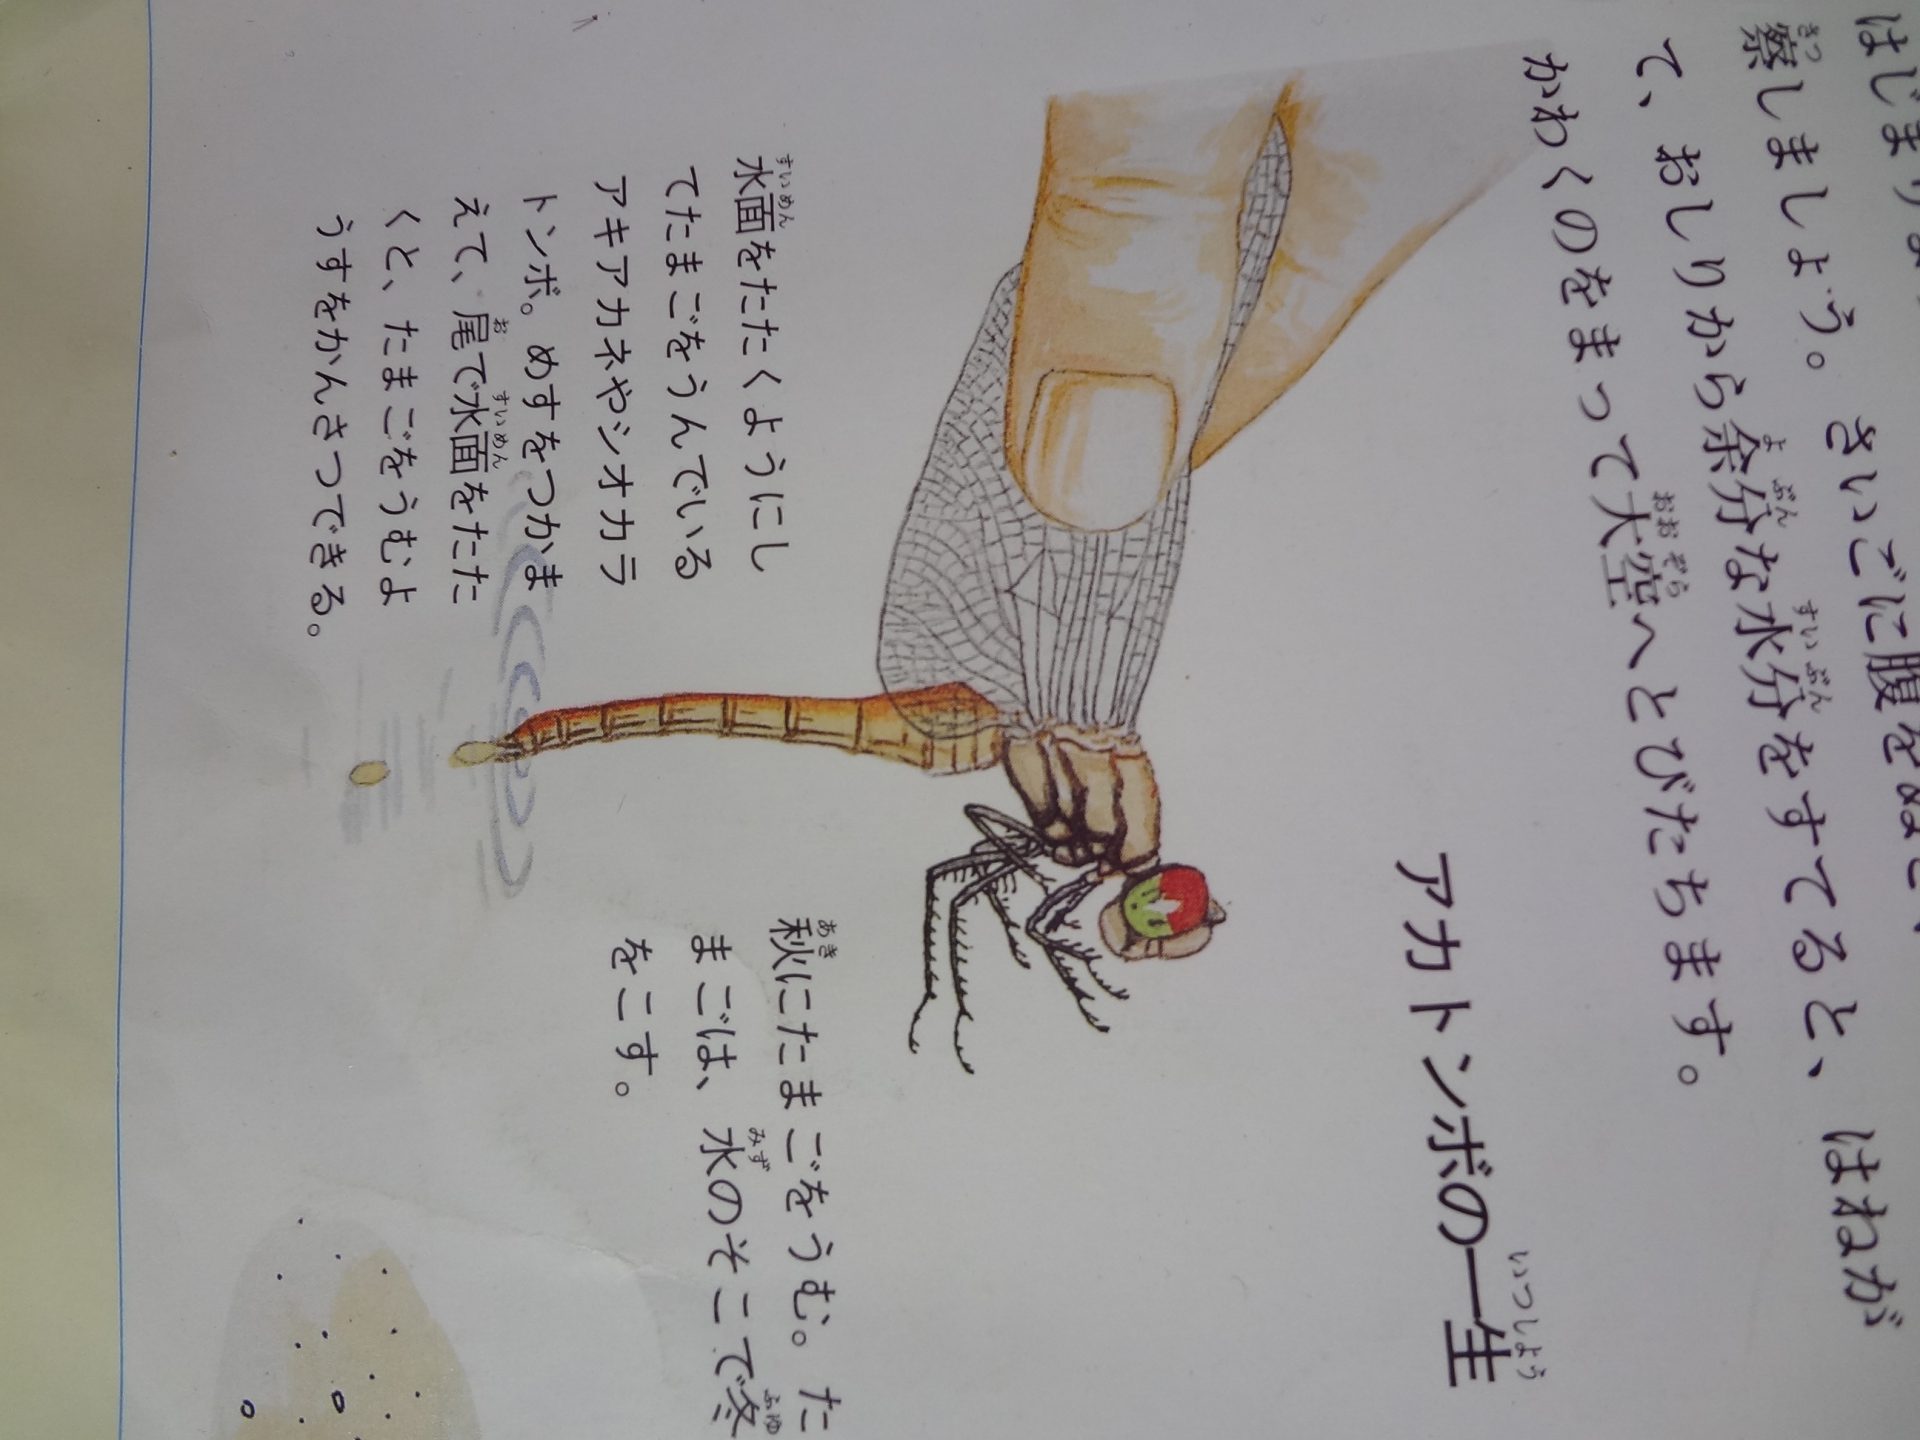 察しましょう。さいごに腹を
て、おしりから余分な水分をすてると、はねが
かわくのをまって大空へとびたちます。
アカトンボの一生
水面をたたくようにし
てたまごをうんでいる
アキアカネやシオカラ
トンボ。めすをつかま
えて、尾で水面をたた
くと、たまごをうむよ
うすをかんさつできる。
秋にたまごをうむ。た
まごは、水のそこで冬
をこす。